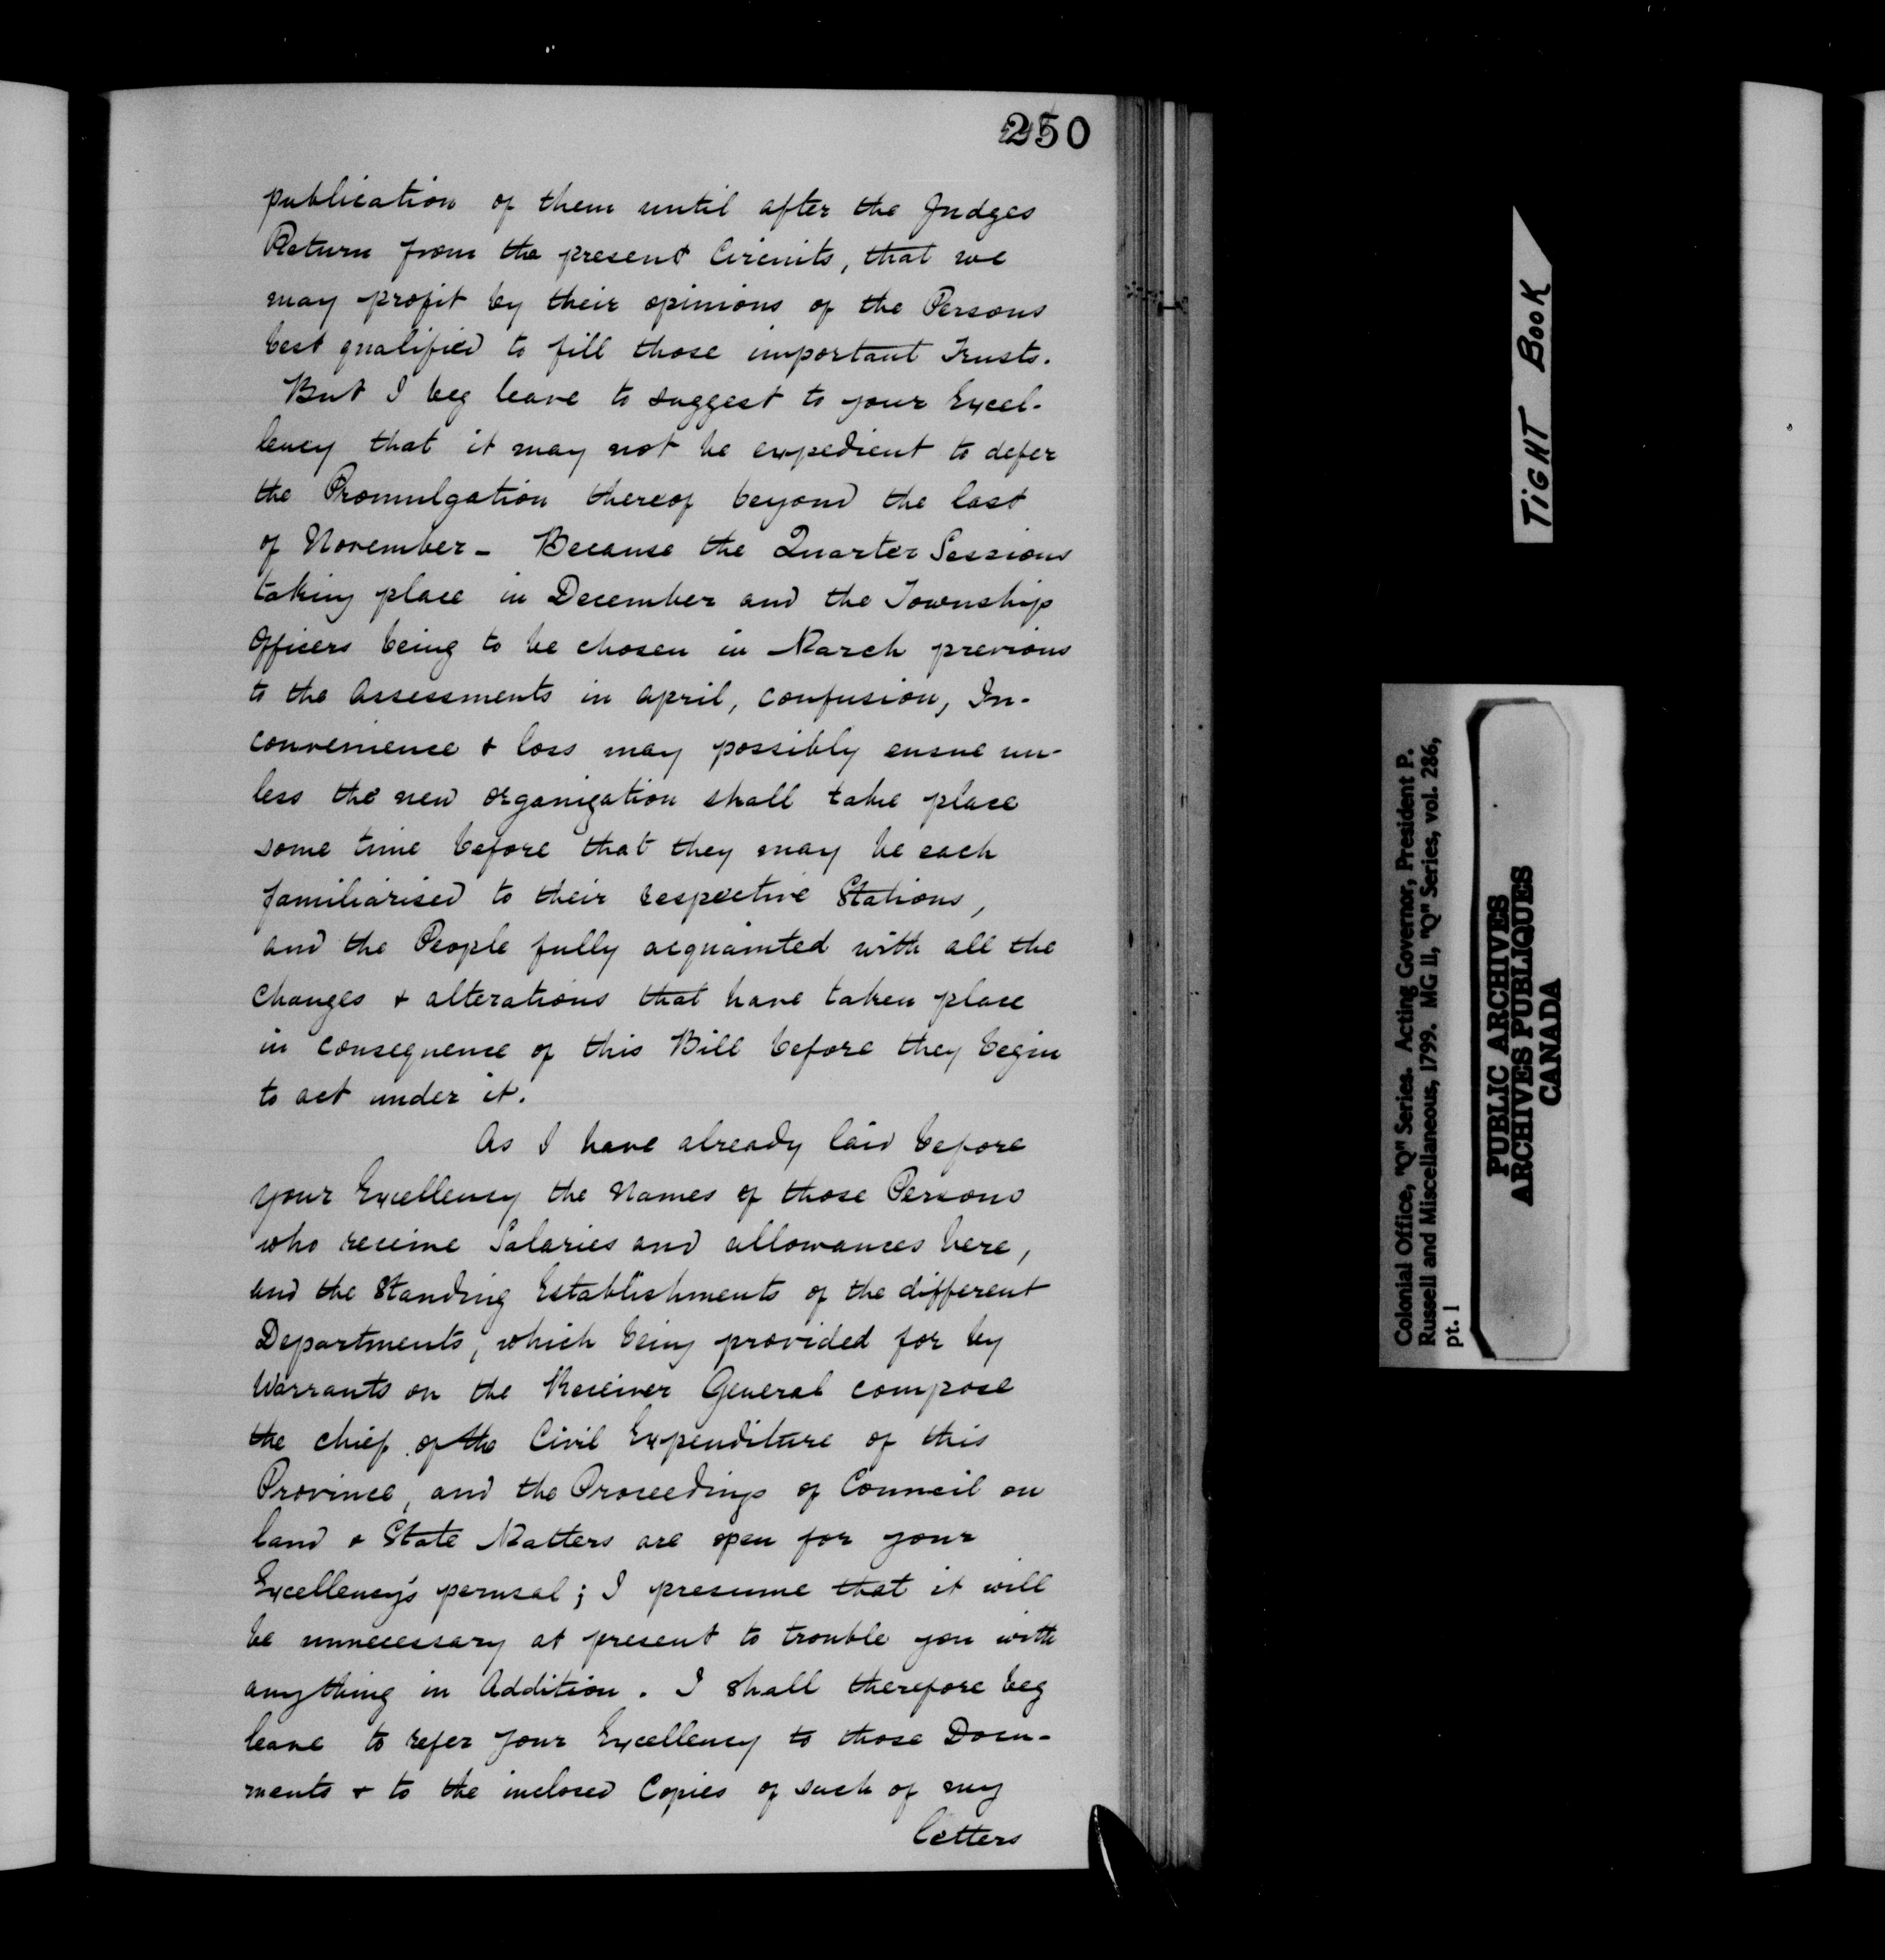 250
publication of them until after the Judges
Return from the present Circuits, that we
may profit by their opinions of the Persons
best qualified to fill those important Trusts.
But I beg leave to suggest to your Excel-
lency that it may not be expedient to defer
the Promulgation thereof beyond the last
of November - Because the Quarter Sessions
taking place in December and the Township
Officers being to be chosen in March previous
to the Assessments in April, confusion, In-
convenience & loss may possibly ensue un-
less the new organization shall take place
some time before that they may be each
familiarised to their respective Stations,
and the People fully acquainted with all the
Changes & alterations that have taken place
in consequence of this Bill before they begin
to act under it.
As I have already laid before
your Excellency the Names of those Persons
who receive Salaries and allowances here,
and the Standing Establishments of the different
Departments, which being provided for by
Warrants on the Receiver General compose
the chief of the Civil Expenditure of this
Province, and the Proceedings of Council on
land & State Matters are open for your
Excellency's perusal; I presume that it will
be unnecessary at present to trouble you with
anything in Addition. I shall therefore beg
leave to refer Your Excellency to those Docu-
ments & to the inclosed Copies of such of my
letters
TIGHT BOOK
Colonial Office, "Q" Series. Acting Governor, President P.
Russell and Miscellaneous, 1799. MG 11, "Q" Series, vol. 286,
pt. 1
PUBLIC ARCHIVES
ARCHIVES PUBLIQUES
CANADA